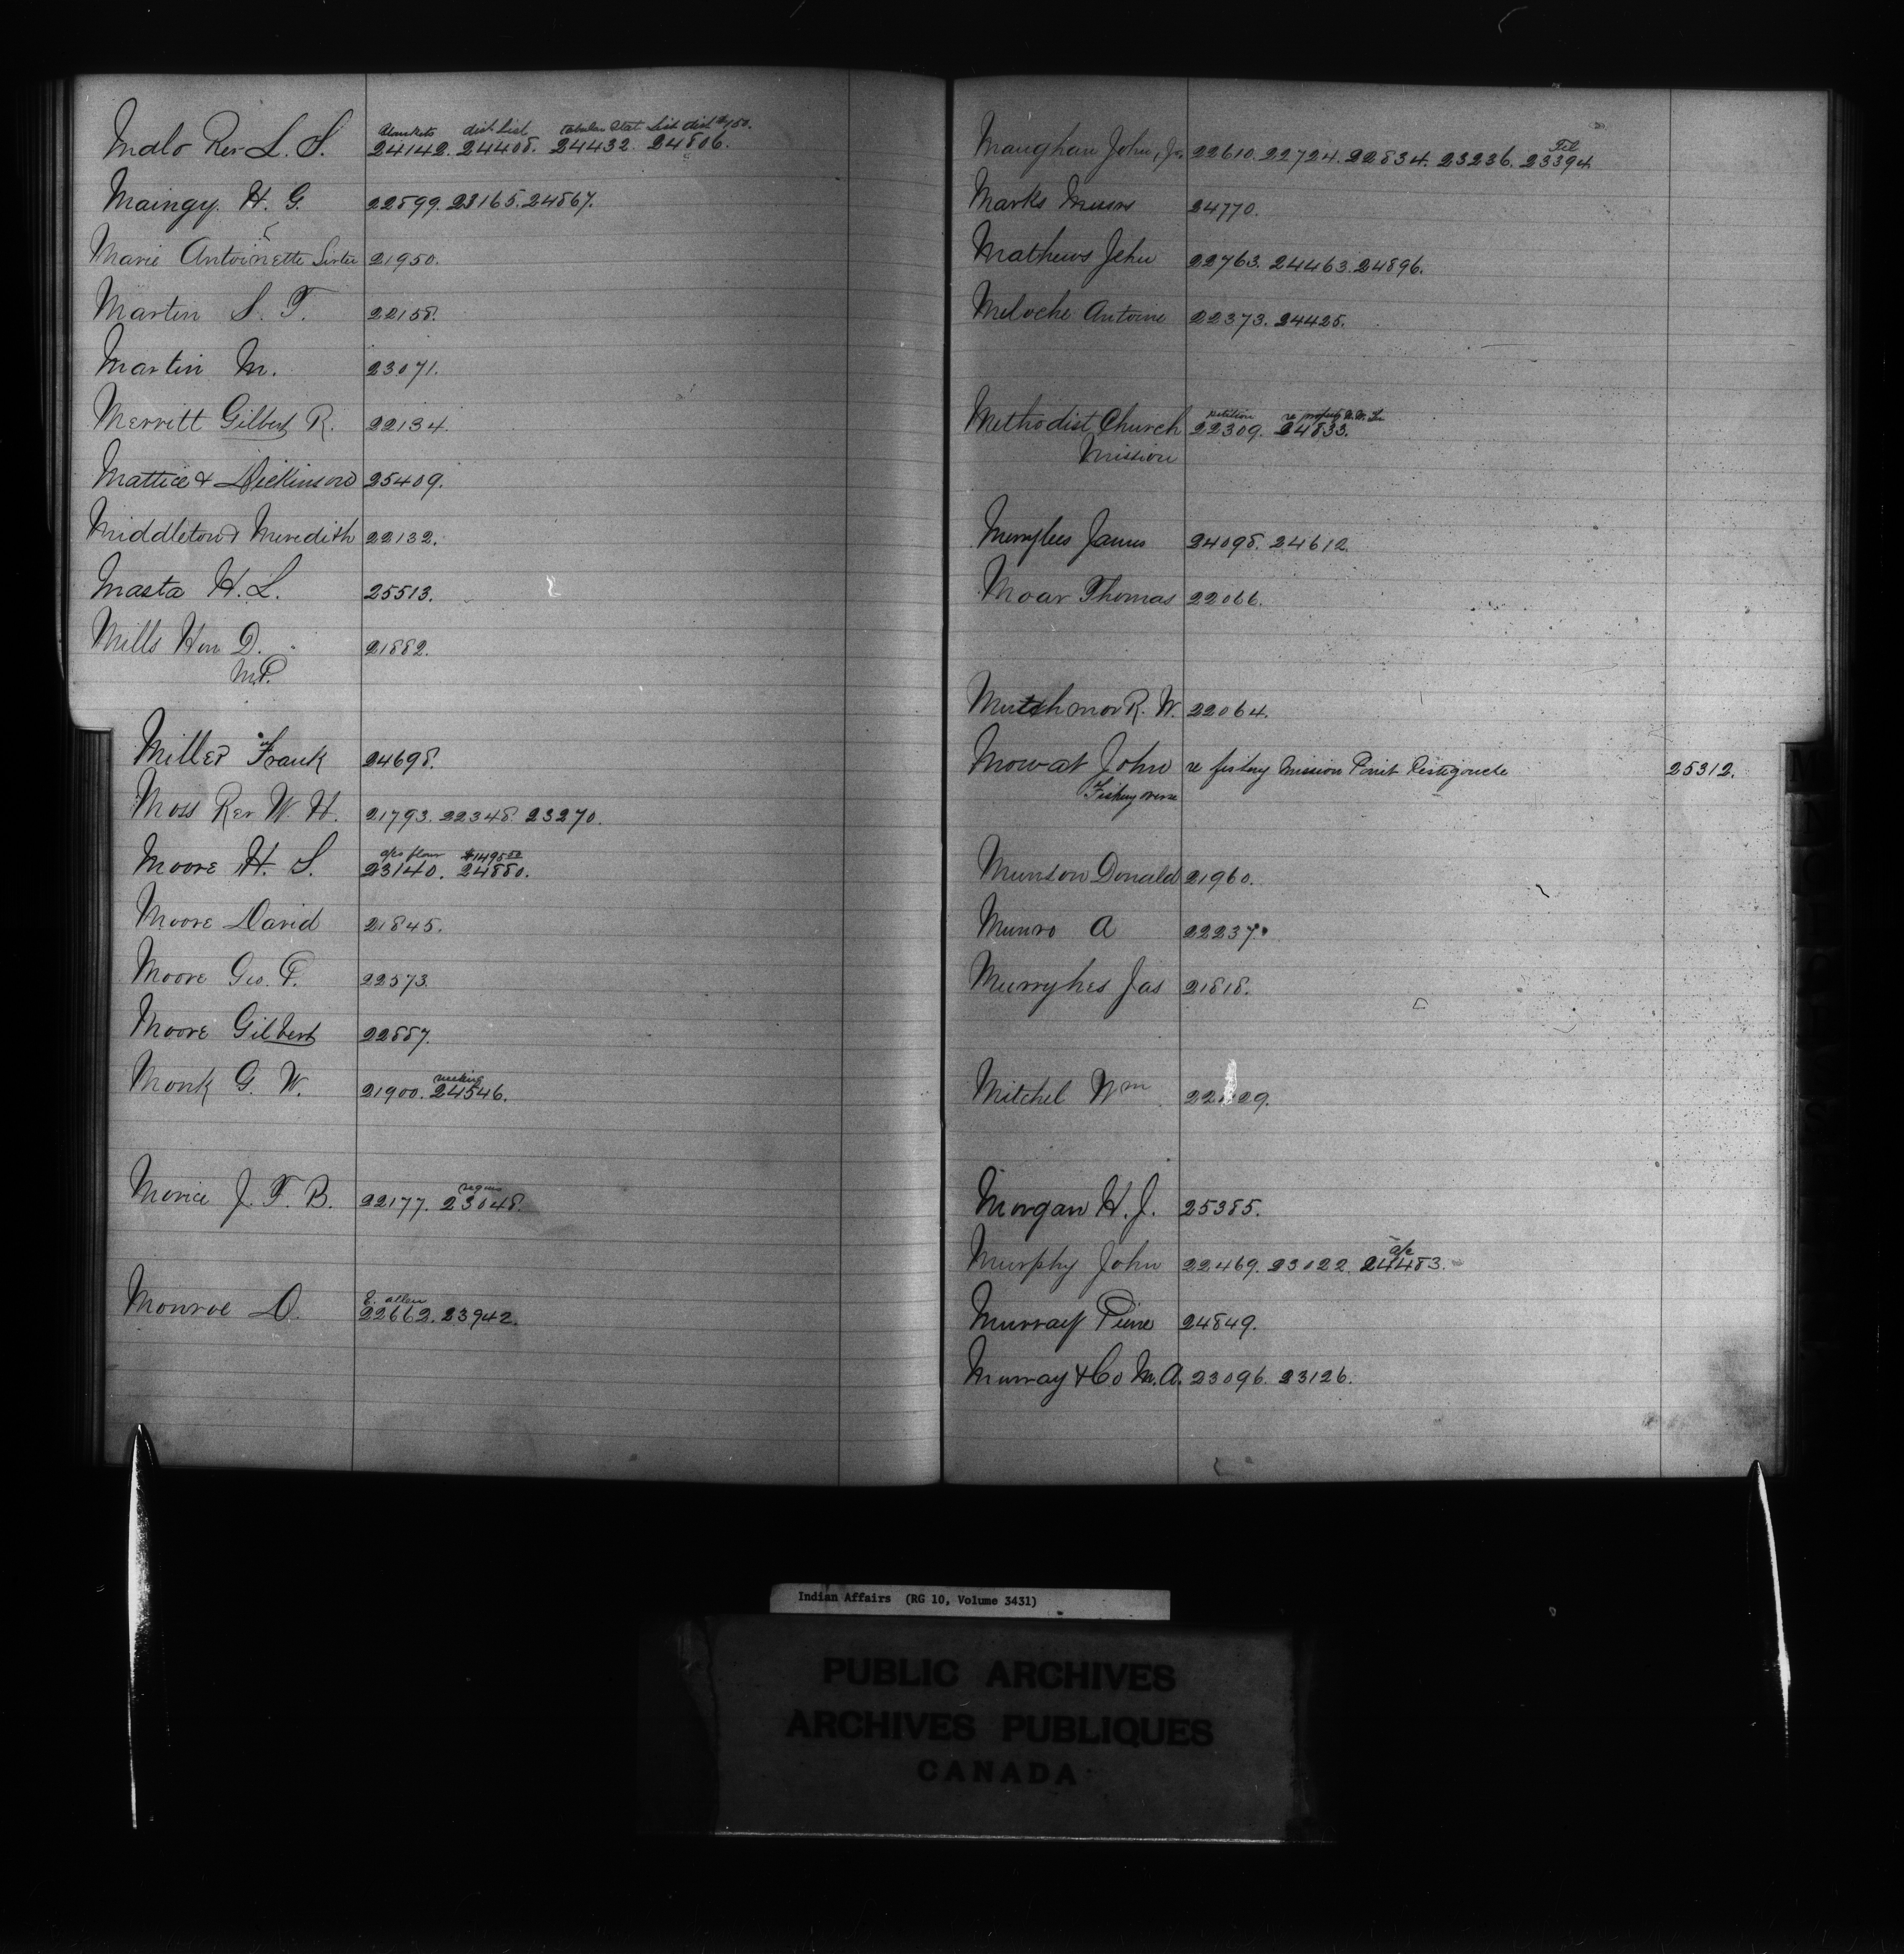 Malo Rev L. S. 24142. 24408. 24432. 24806.
blankets dist list tabular Stat List dist $150.
Maingy. H. G. 22899. 23165. 24867.
Marie Antoinette Sister 21950.
Martin S. T. 22158.
Martin M. 23071.
Merritt Gilbert R. 22134.
Mattice & Dickinson 25409.
Middleton & Meredith 22132.
Masta H. L. 25513.
Mills Hon D. 21882.
M.P.
Miller Frank 24698.
Moss Rev W. H. 21793. 22348. 23270.
a/c flour $1495.00
Moore H. S. 23140. 24880.
Moore David 21845.
Moore Geo. P. 22573.
Moore Gilbert 22887.
Monk G. W. 21900. 24546.
Morice J. T. B. 22177. 23048.
E. allen
Monroe D. 22662. 23942.
Maughan John, Jr, 22610. 22724. 22834. 23236. 23394.
Tel
Marks Messrs 24770.
Mathews Jehu 22763. 24463. 24896.
Meloche Antoine 22373. 24425.
petition re
Methodist Church 22309. 24833.
Mission
Merrylees James 24098. 24612.
Moar Thomas 22066.
Mutchmor R. W. 22064.
Mowat John re fishery Mission Point Restigouche 25312.
Fishery
Munson Donald 21960.
Munro A 22237.
Murryhes Jas 21818.
Mitchel Wm
Morgan H. J. 25385.
a/c
Murphy John 22469. 23022. 24483.
Murray Pierre 24849.
Murray & Co M. A. 23096. 23126.
Indian Affairs (RG 10, Volume 3431)
PUBLIC ARCHIVES
ARCHIVES PUBLIQUES
CANADA